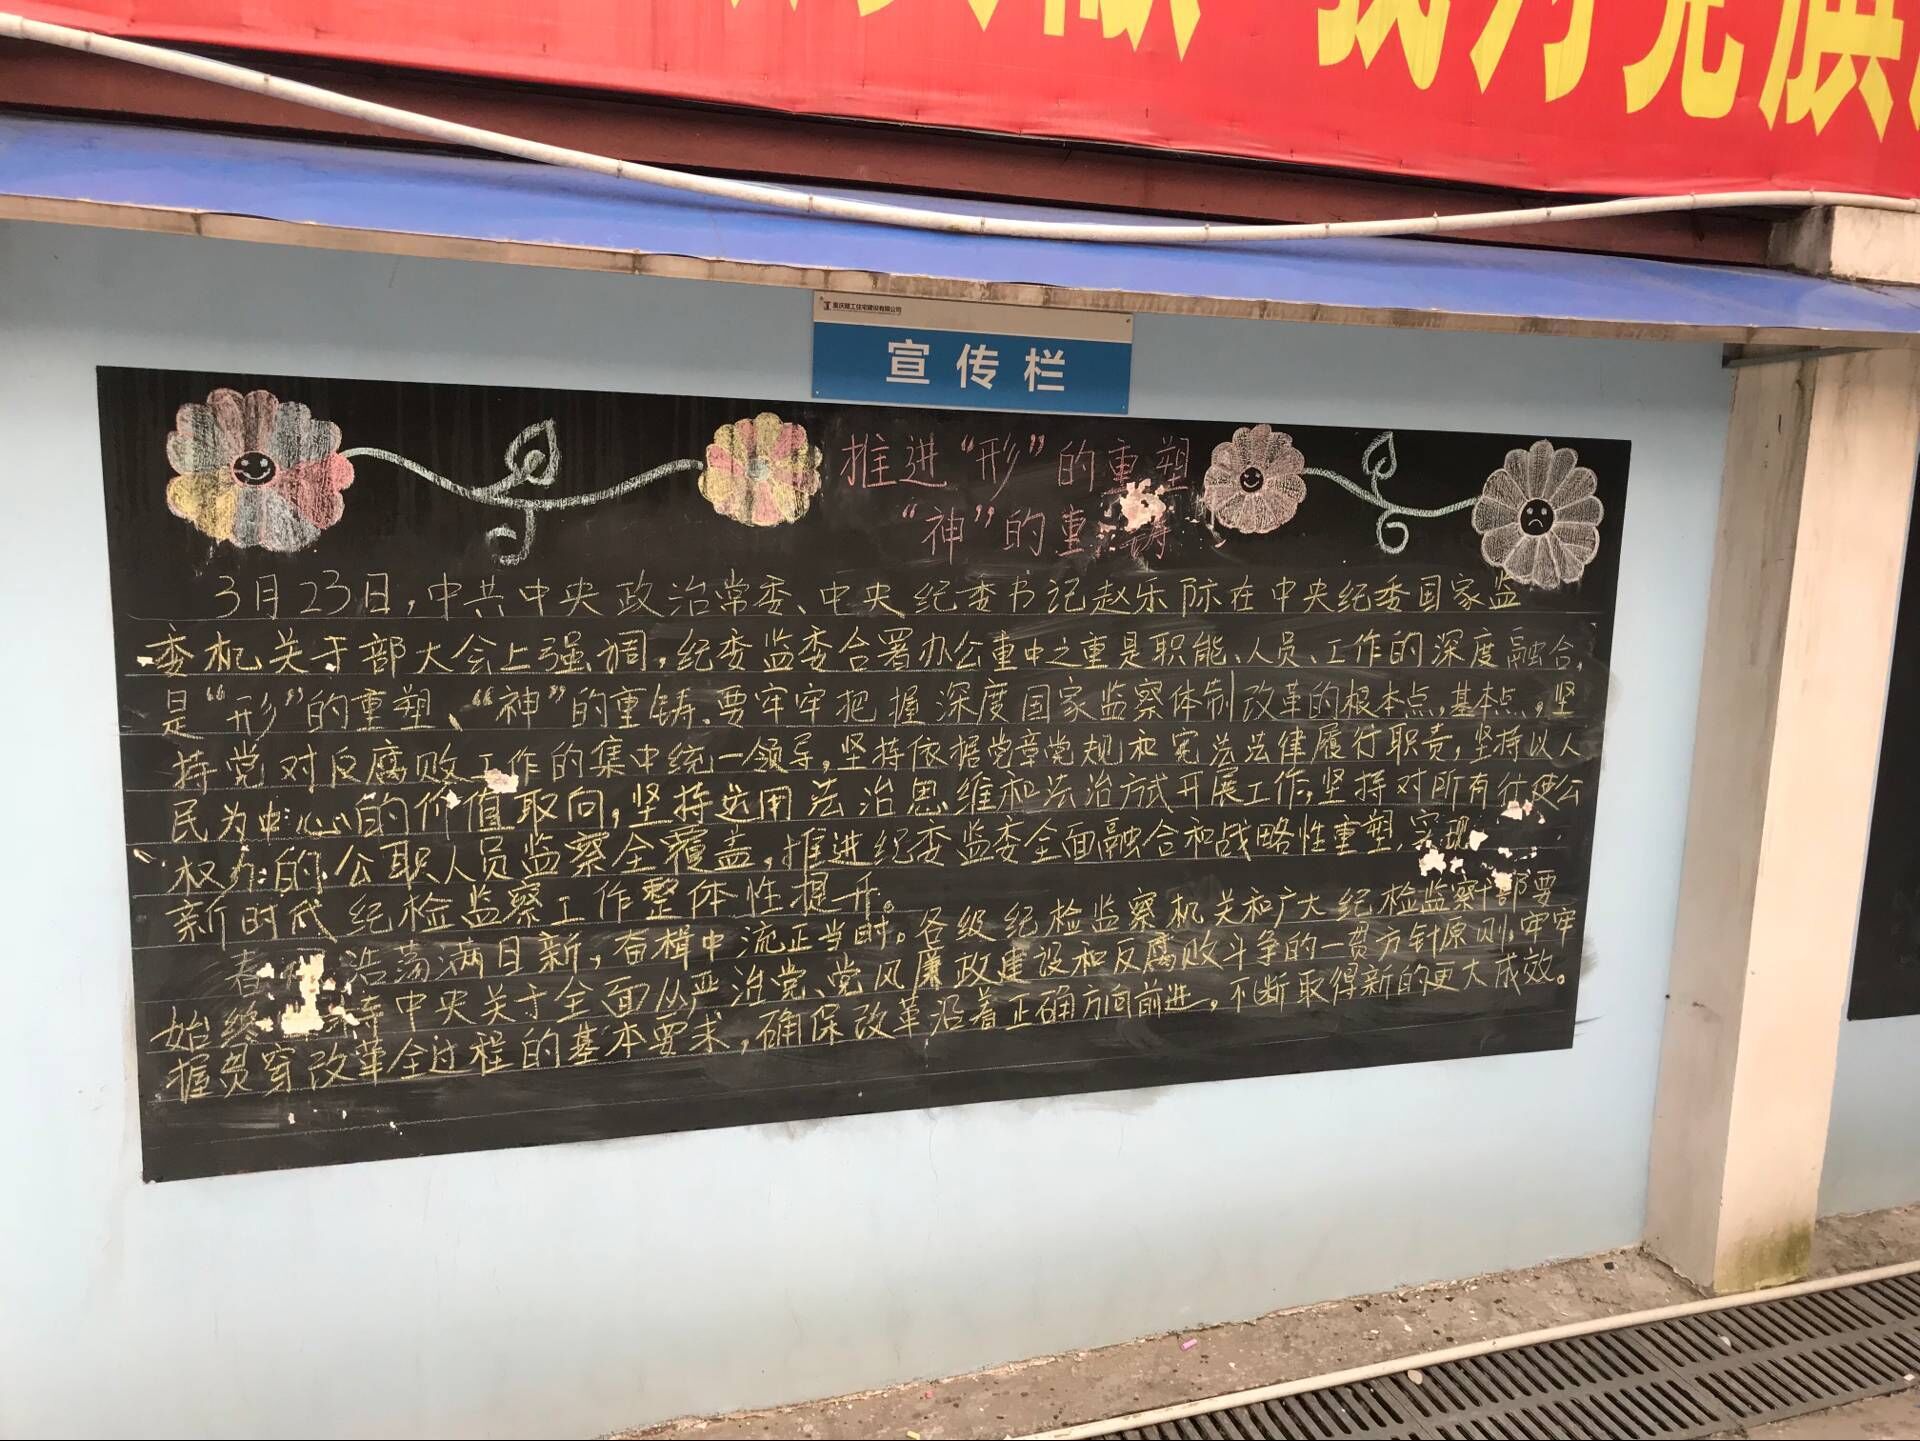 我为党旗
重庆建工住宅建设有限公司
宣传栏
推进“形”的重塑
“神”的重铸
3月23日,中共中央政治常委、中央纪委书记赵乐际在中央纪委国家监
委机关干部大会上强调,纪委监委合署办公重中之重是职能、人员、工作的深度融合,
是“形”的重塑、“神”的重铸.要牢牢把握深度国家监察体制改革的根本点,基本点,坚
持党对反腐败工作的集中统一领导,坚持依据党章党规和宪法法律履行职责,坚持以人
民为中心的价值取向,坚持运用法治思维和法治方式开展工作,坚持对所有行使公
权力的公职人员监察全覆盖,推进纪委监委全面融合和战略性重塑,实现
新时代纪检监察工作整体性提升。
春 浩荡满目新,奋楫中流正当时。各级纪检监察机关和广大纪检监察干部要
始终 中央关于全面从严治党、党风廉政建设和反腐败斗争的一贯方针原则,牢牢
握贯穿改革全过程的基本要求,确保改革沿着正确方向前进,不断取得新的更大成效。